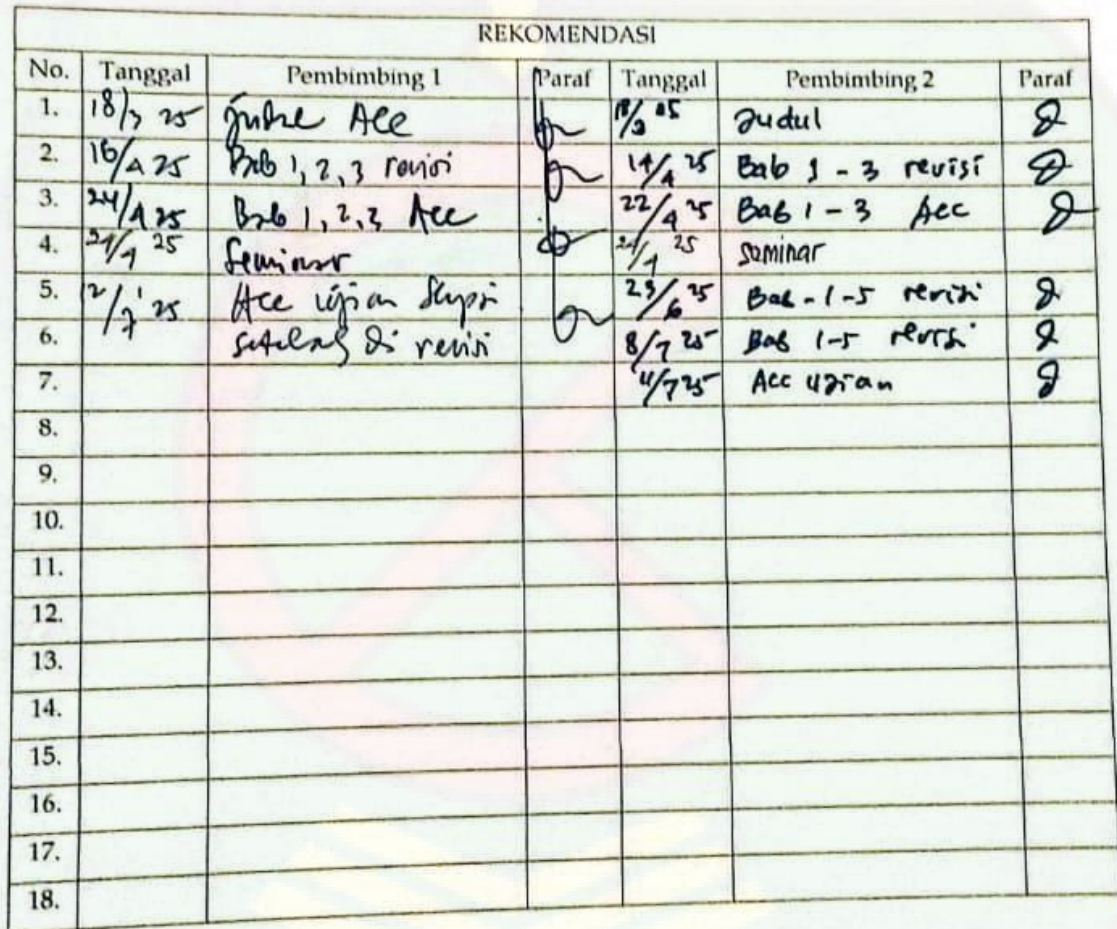 REKOMENDASI
No. Tanggal Pembimbing 1 Paraf Tanggal Pembimbing 2 Paraf
1. 18/3 25 Judul Acc 18/3 25 Judul
2. 16/4 25 Bab 1, 2, 3 revisi 14/4 25 Bab 1 - 3 revisi
3. 24/4 25 Bab 1, 2, 3 Acc 22/4 25 Bab 1 - 3 Acc
4. 25 Seminar 25 seminar
5. 2/7 25 Acc ujian Skripsi 23/6 25 Bab - 1 - 5 revisi
6. setelah di revisi 8/7 25 Bab 1-5 revisi
7. 11/7 25 Acc ujian
8.
9.
10.
11.
12.
13.
14.
15.
16.
17.
18.